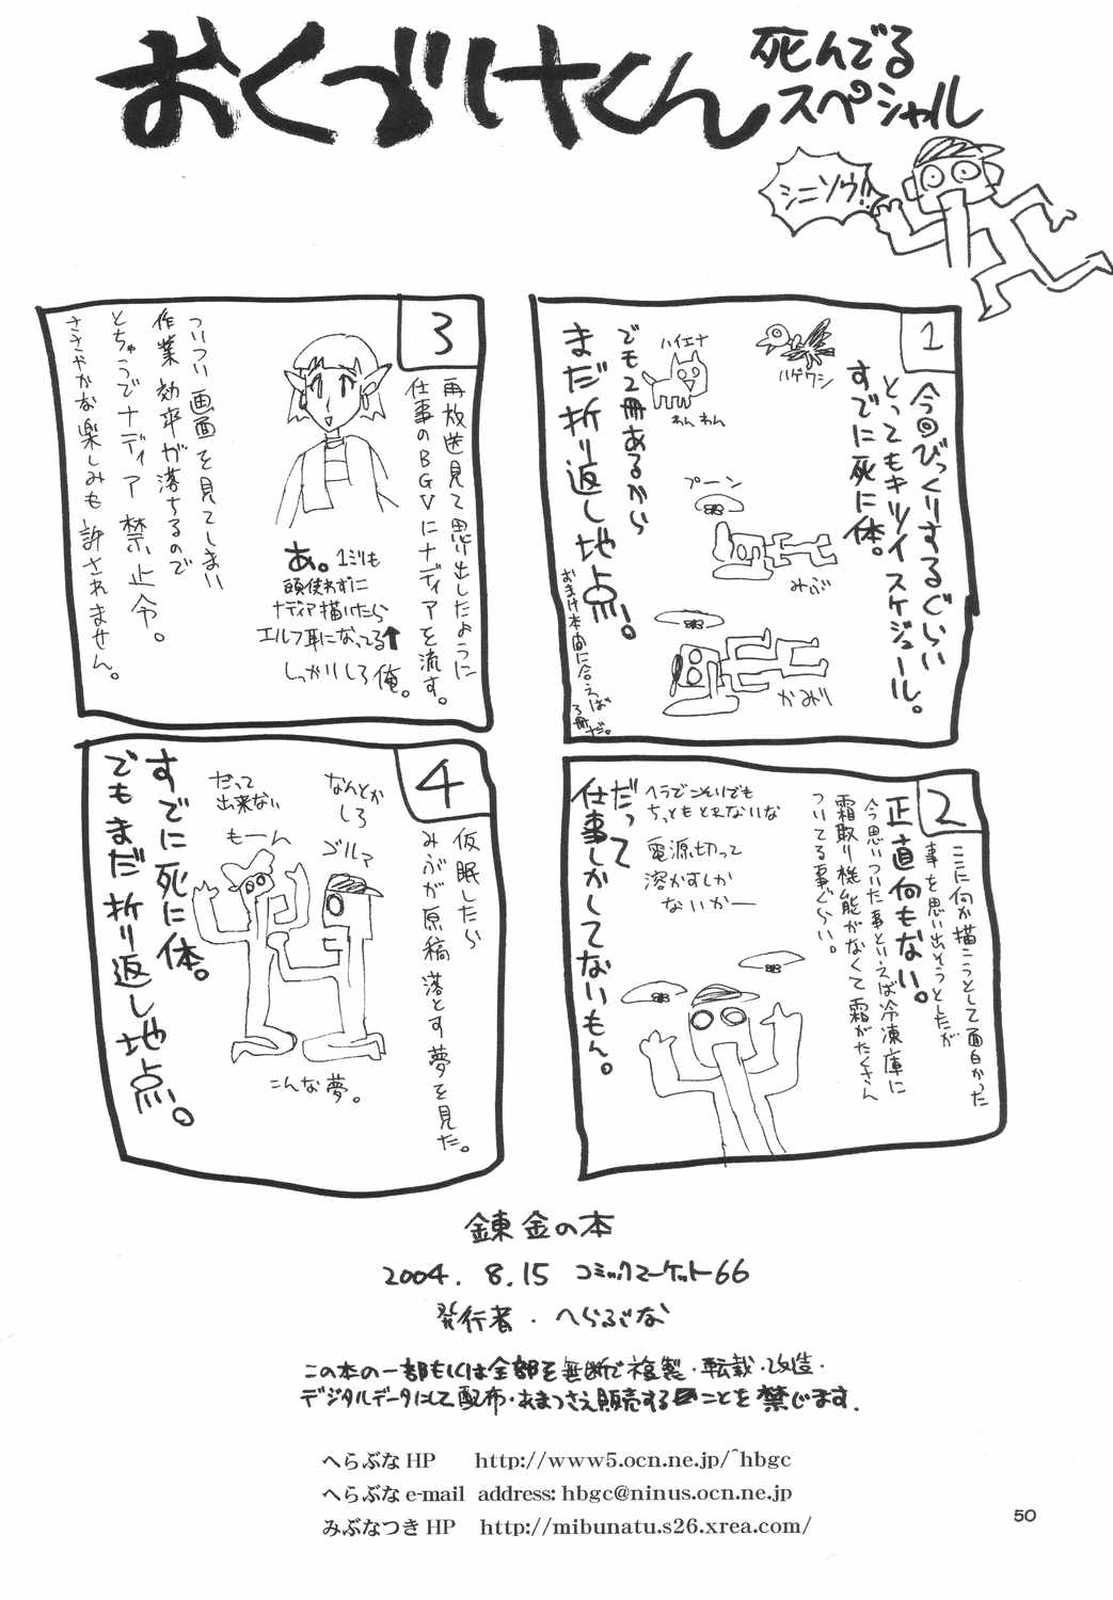 おくづけくん
死んでる
スペシャル
シニソウ!!
1
今回びっくりするぐらい
とってもキツイスケジュール。
すでに死に体。
ハゲワシ
ハイエナ
わんわん
プーン
みぶ
かみり
でも2冊あるから
まだ折り返し地点。
おまけ本間に合えば
3冊だ。
2
ここに何か描こうとして面白かった
事を思い出そうとしたが
正直何もない。
今思いついた事といえば冷凍庫に
霜取り機能がなくて霜がたくさん
ついてる事ぐらい。
ヘラでこそいでも
ちっともとれないな
電源切って
溶かすしか
ないかー
だって
仕事しかしてないもん。
3
再放送見て思い出したように
仕事のBGVにナディアを流す。
あ。1ミリも
頭使わずに
ナディア描いたら
エルフ耳になってる↑
しっかりしろ俺。
ついつい画面を見てしまい
作業効率が落ちるので
とちゅうでナディア禁止令。
ささやかな楽しみも許されません。
4
仮眠したら
みぶが原稿落とす夢を見た。
なんとか
しろ
ゴルァ
だって
出来ない
もーん
こんな夢。
すでに死に体。
でもまだ折り返し地点。
錬金の本
2004.8.15 コミックマーケット66
発行者・へらぶな
この本の一部もしくは全部を無断で複製・転載・改造・
デジタルデータにして配布・あまつさえ販売することを禁じます.
へらぶなHP http://www5.ocn.ne.jp/~hbgc
へらぶなe-mail address:hbgc@ninus.ocn.ne.jp
みぶなつきHP http://mibunatu.s26.xrea.com/
50